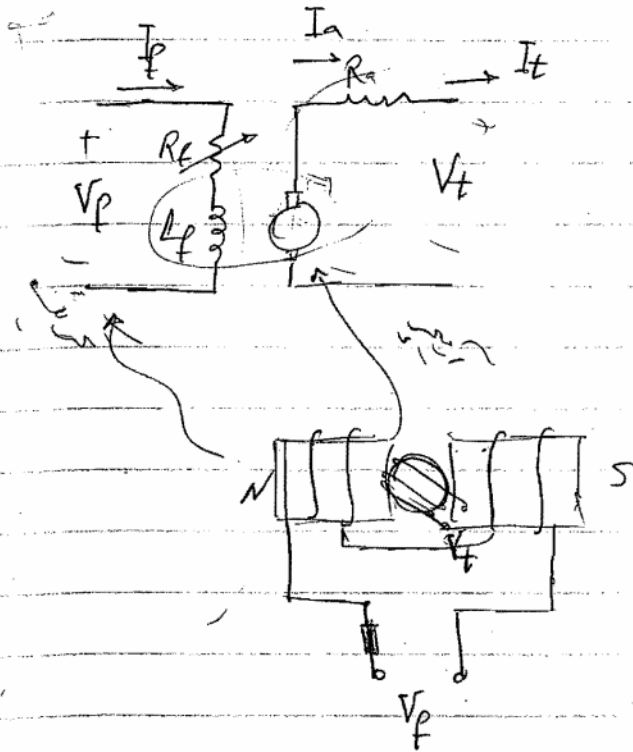 I_f I_a I_t
R_a
+ R_f +
V_f L_f V_t
- -
N S
V_t
V_f